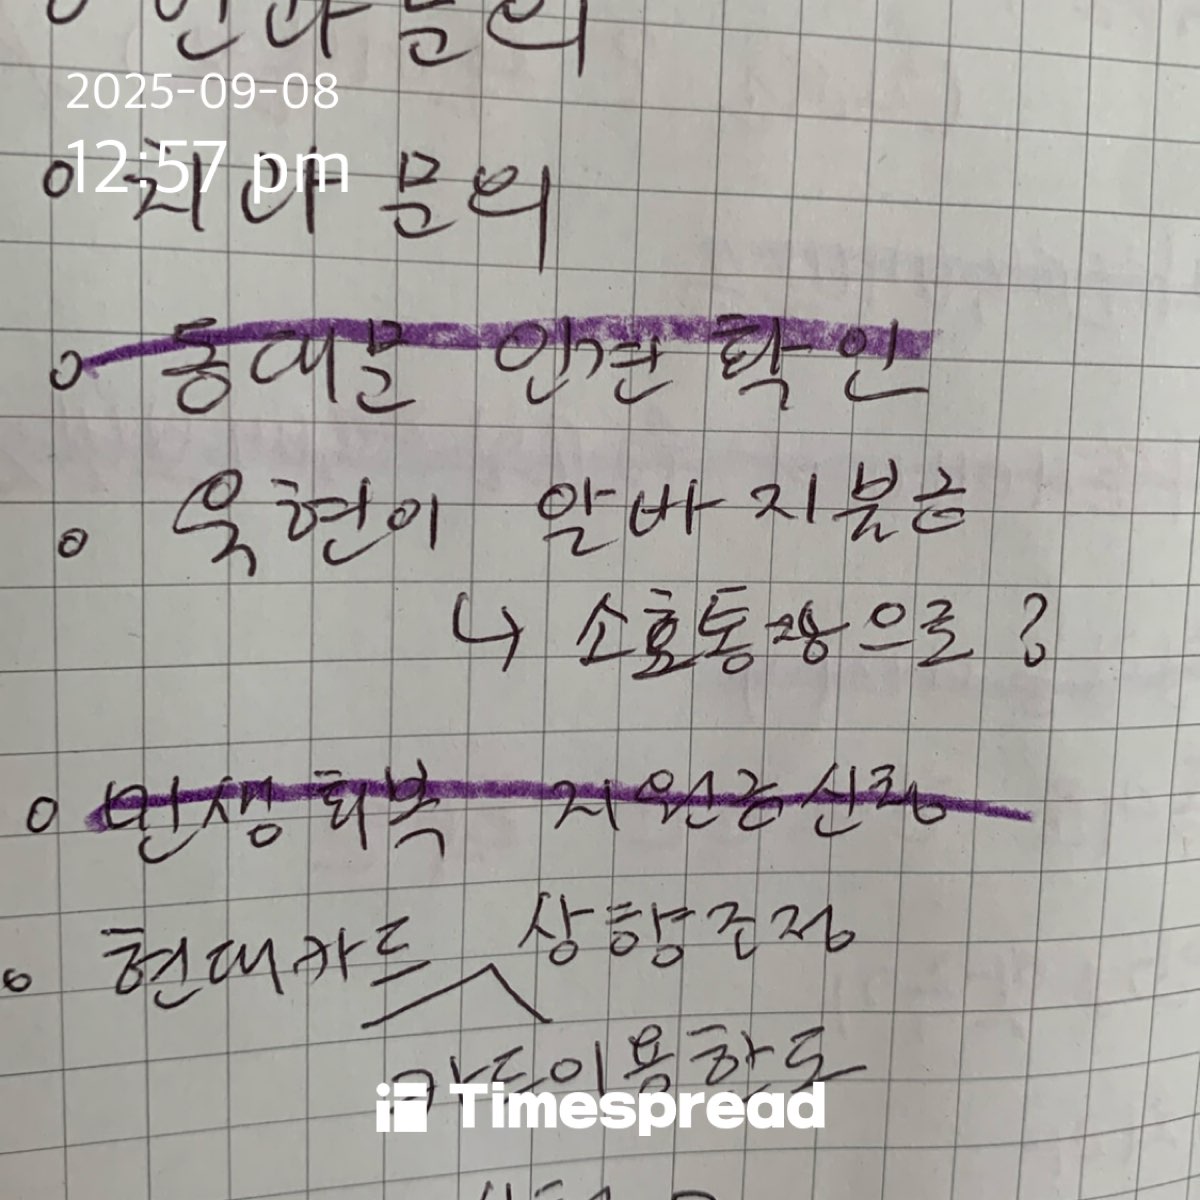 문의
2025-09-08
12:57 pm
문의
동대문 인견 확인
욱현이 알바 지불금
↳ 소호통장으로?
민생회복 지원금신청
현대카드 상향조정
카드이용한도
Timespread